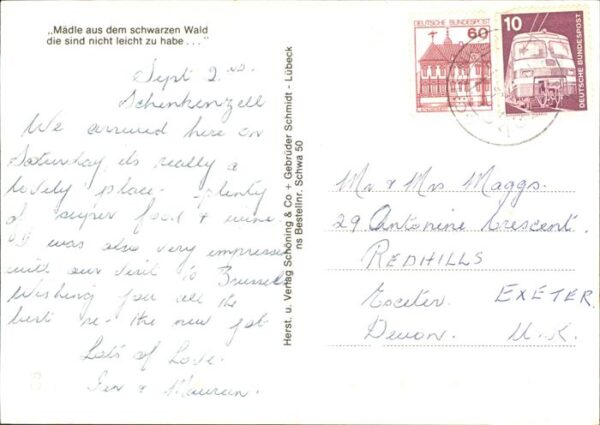 „Mädle aus dem schwarzen Wald
die sind nicht leicht zu habe . . ."
Sept 2nd.
Schenkenzell
We arrived here on
Saturday, its really a
lovely place - plenty
of super food & wine
was also very impressed
with our visit to Brussels
Wishing you all the
best re- the new job
Lots of Love.
& Maureen.
Herst. u. Verlag Schöning & Co + Gebrüder Schmidt - Lübeck
ns Bestellnr. Schwa 50
DEUTSCHE BUNDESPOST
60
10
DEUTSCHE BUNDESPOST
Mr & Mrs Maggs.
29 Antonine Crescent.
REDHILLS
Exeter. EXETER.
Devon. U.K.